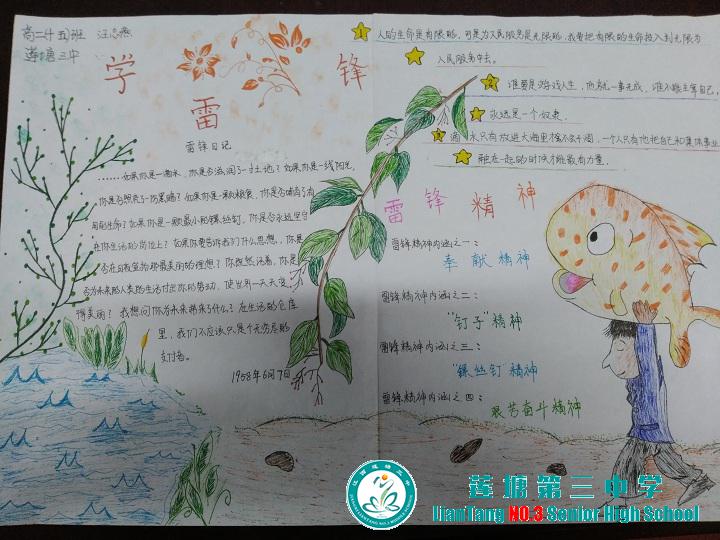 高二十五班
莲塘三中
学
雷
锋
雷锋日记
……如果你是一滴水，你是否滋润了一寸土地？如果你是一线阳光，
你是否照亮了一份黑暗？如果你是一颗粮食，你是否哺育了有
用的生命？如果你是一颗最小的螺丝钉，你是否永远坚守
在你生活的岗位上？如果你要告诉我们什么思想，你是
否在日夜宣扬那最美丽的理想？你既然活着，你是
否为未来的人类的生活付出你的劳动，使世界一天天变
得美丽？我想问你为未来带来了什么？在生活的仓库
里，我们不应该只是个无穷尽的
支付者。
1958年6月7日
1 人的生命是有限的，可是为人民服务是无限的，我要把有限的生命投入到无限为
人民服务中去。
2 谁要是游戏人生，他就一事无成，谁不能主宰自己，
永远是一个奴隶。
3 滴水只有放进大海里才不会干涸，一个人只有他把自己和集体事业
融在一起的时候才能最有力量。
雷锋精神
雷锋精神内涵之一：
奉献精神
雷锋精神内涵之二：
"钉子"精神
雷锋精神内涵之三：
"螺丝钉"精神
雷锋精神内涵之四：
艰苦奋斗精神
莲塘第三中学
LianTang NO.3 Senior High School